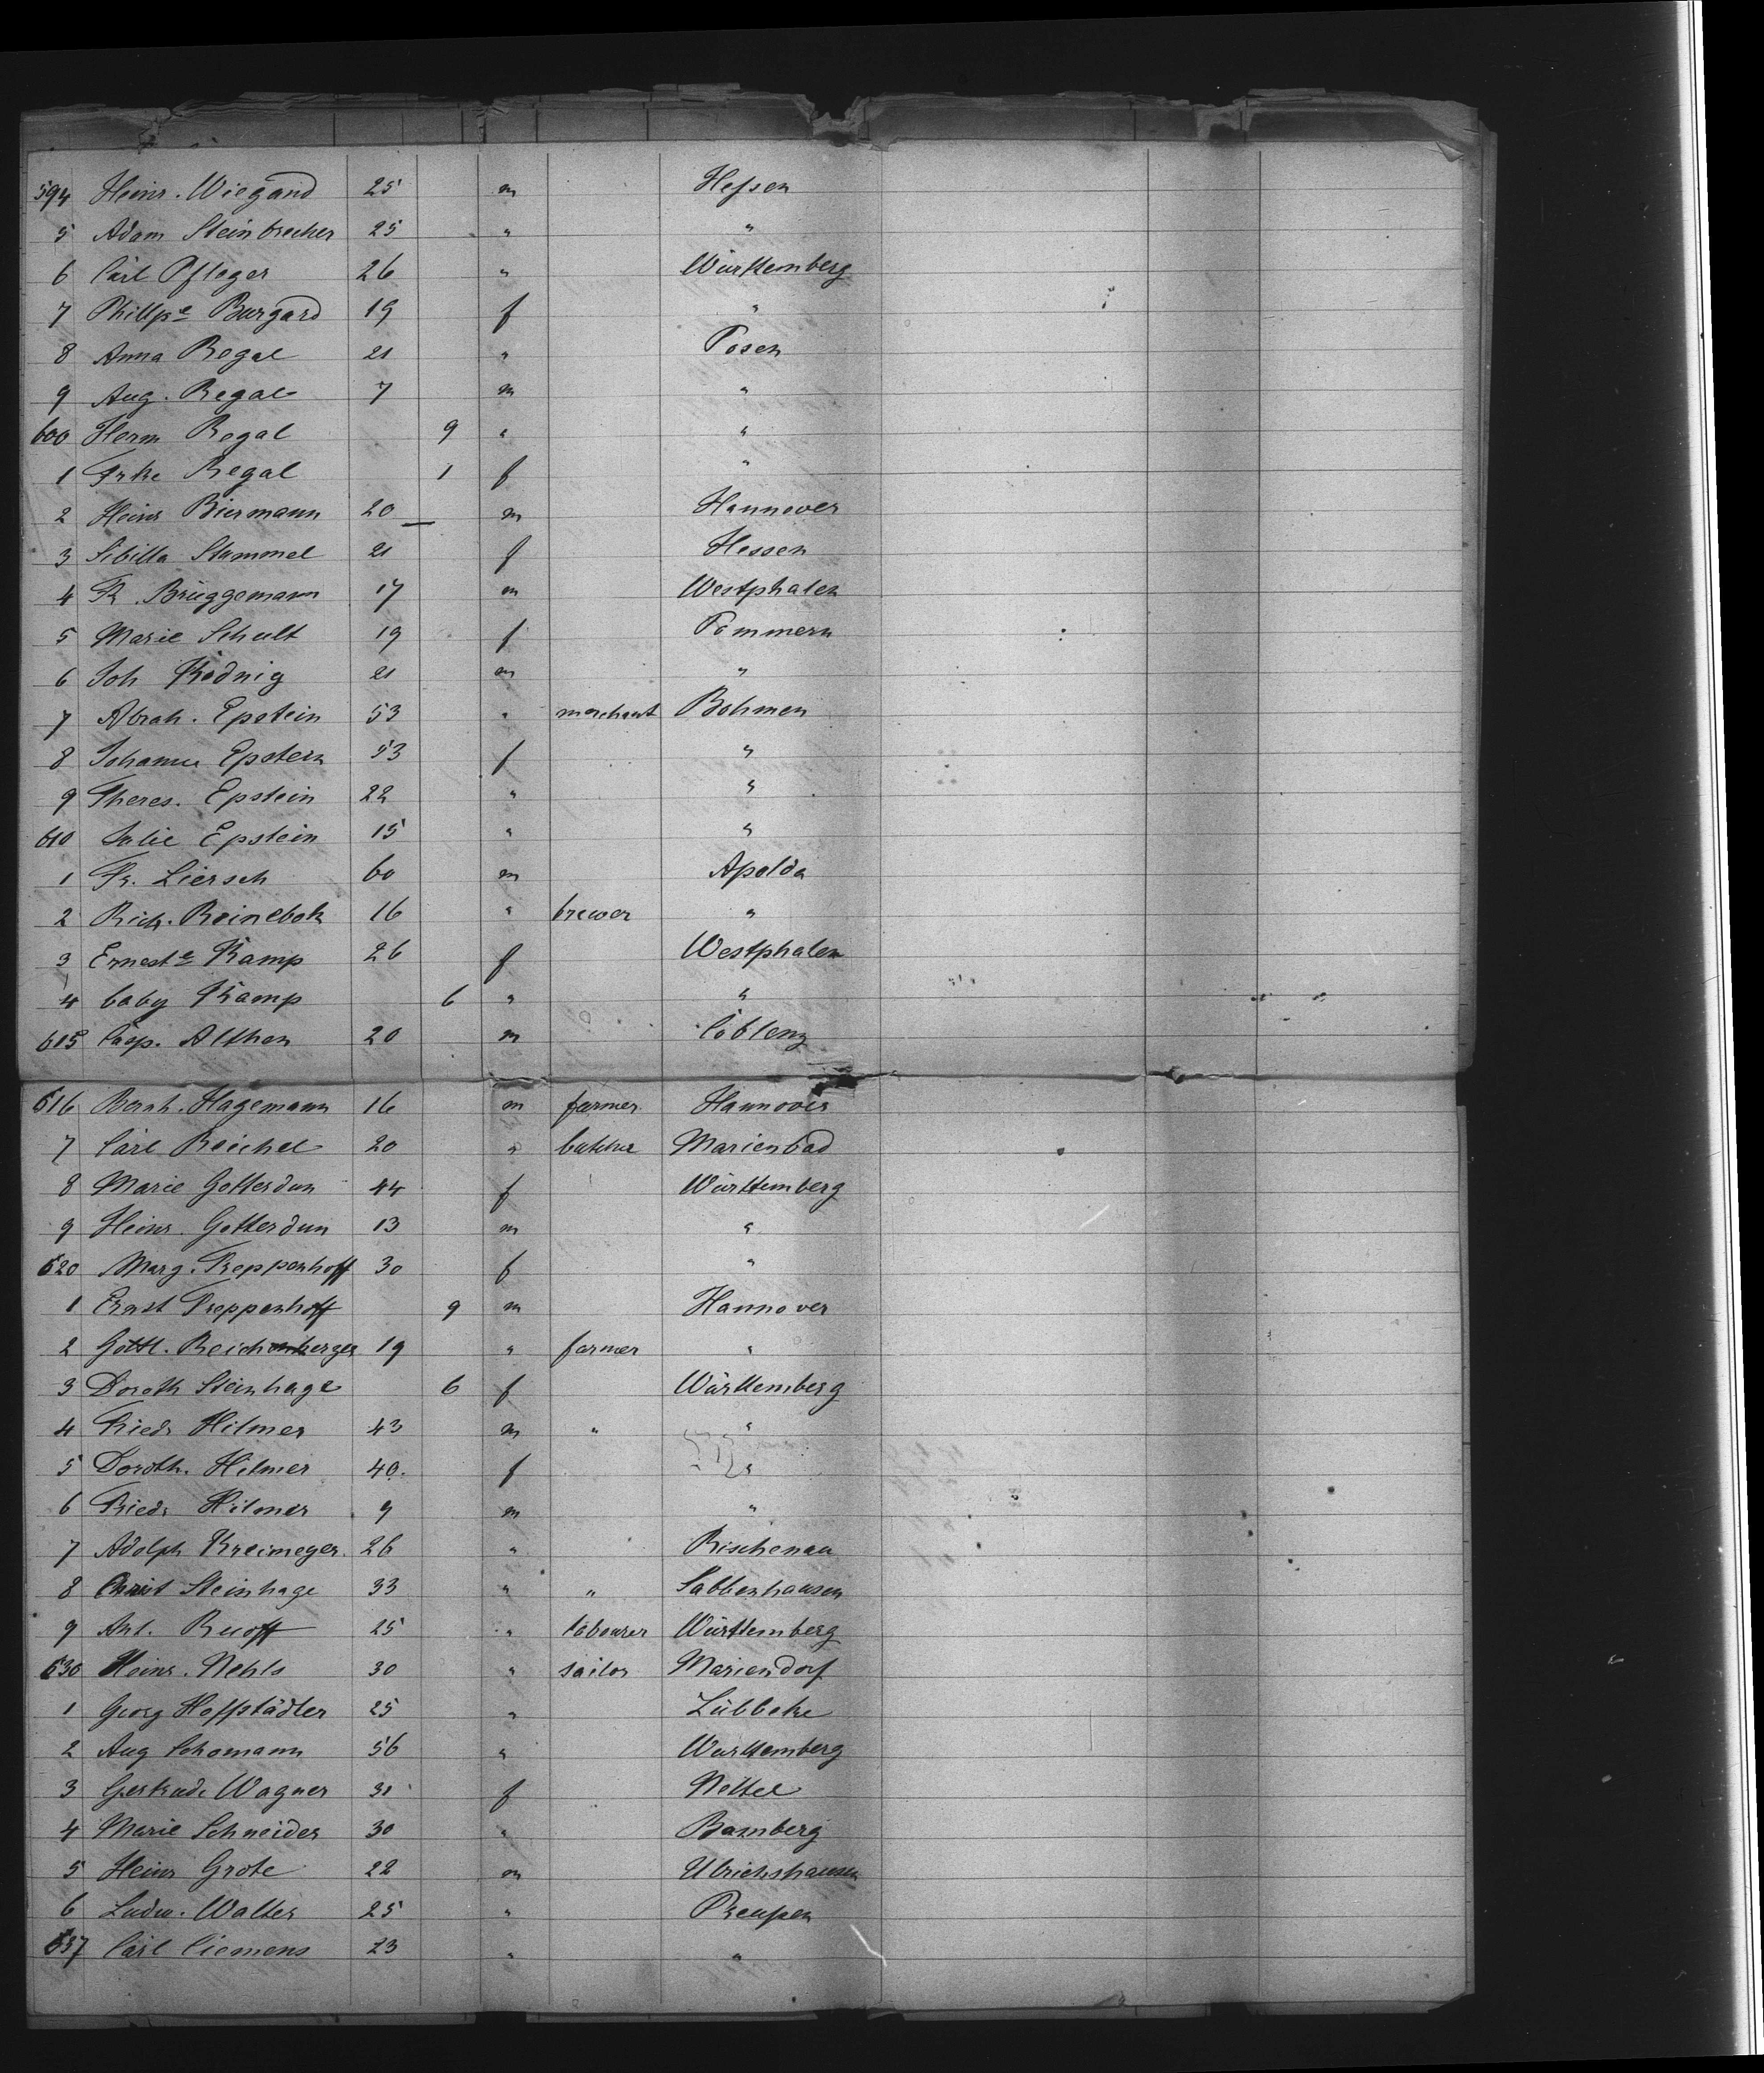 594 Heinr. Wiegand 25 m Hessen
5 Adam Steinbrecher 25 " "
6 Carl Pfleger 26 " Württemberg
7 Phillpe Burgard 19 f "
8 Anna Regal 21 " Posen
9 Aug. Regal 7 m "
600 Herm Regal 9 " "
1 Frke Regal 1 f "
2 Heinr Biermann 20 m Hannover
3 Sibilla Stammel 21 f Hessen
4 Fr. Brüggemann 17 m Westphalen
5 Marie Schult 19 f Pommern
6 Joh Ködnig 21 m "
7 Abrah. Epstein 53 " merchant Bohmen
8 Johanna Epstein 53 f "
9 Theres. Epstein 22 " "
610 Julie Epstein 15 " "
1 Fr. Liersch 60 m Apolda
2 Rich. Reinebok 16 " brewer "
3 Erneste Kamp 26 f Westphalen
4 baby Kamp 6 " "
615 Casp. Althen 20 m Coblenz
616 Bernh. Hagemann 16 m farmer Hannover
7 Carl Reichel 20 " Marienbad
8 Marie Gotterdun 44 f Württemberg
9 Heinr. Gotterdun 13 m "
620 Marg. Treppenhoff 30 f "
1 Ernst Treppenhoff 9 m Hannover
2 Gottl. Reichenberger 19 " farmer "
3 Doroth Steinhage 6 f Württemberg
4 Friedr Hilmer 43 m " "
5 Doroth. Hilmer 40. f "
6 Friedr Hilmer 9 m "
7 Adolph Kreimeyer. 26 " Rischenau
8 Christ Steinhage 33 " " Sabbenhausen
9 Ant. Ruoff 25 " labourer Württemberg
630 Heinr. Nehls 30 " sailor Mariendorf
1 Georg Hoffstädter 25 " Lübbeke
2 Aug Schomann 56 " Wurttemberg
3 Gertrude Wagner 31 f Nettel
4 Marie Schneider 30 " Bamberg
5 Heinr Grote 22 m Ulrichshausen
6 Ludw. Walter 25 " Preussen
637 Carl Ciemens 23 " "